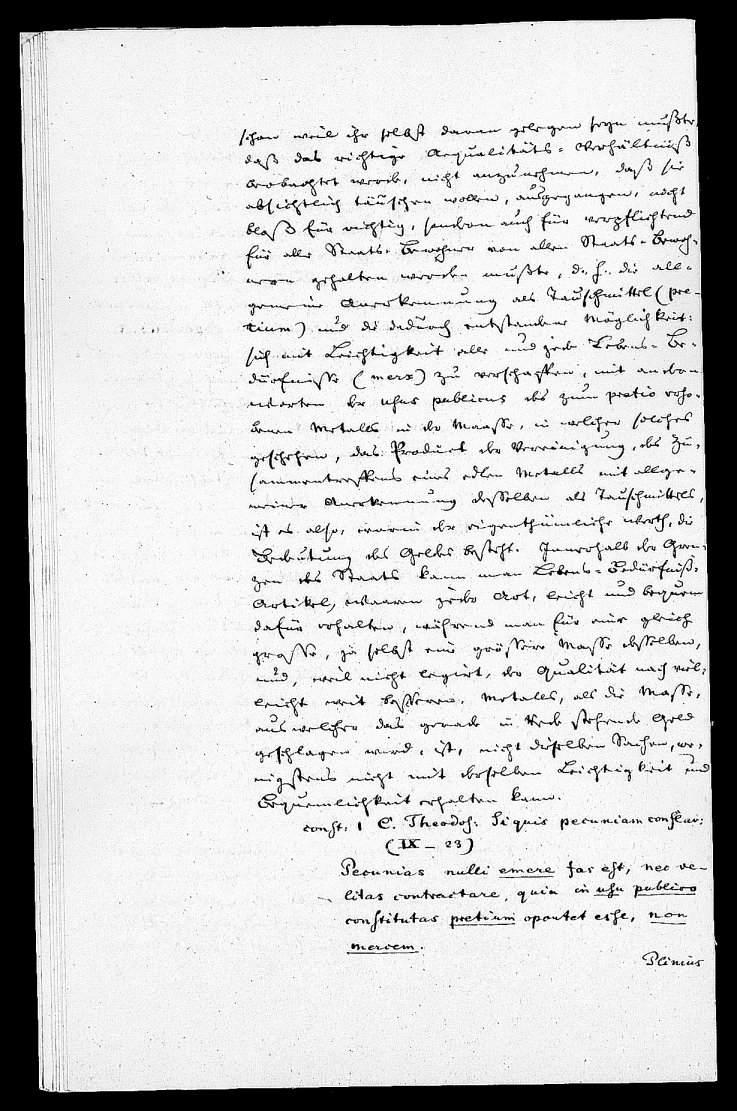 schon weil ihr selbst daran gelegen seyn mußte,
daß das richtige Aequalitäts-Verhältniß
beobachtet werde, nicht anzunehmen, daß sie
absichtlich täuschen wollen, ausgegangen, nicht
blos für richtig, sondern auch für verpflichtend
für alle Staats-Bewohner von allen Staats-Bewoh-
nern gehalten werden mußte, d. h. die all-
gemeine Anerkennung als Tauschmittel (pre-
tium) und die dadurch entstandene Möglichkeit:
sich mit Leichtigkeit alle und jede Lebens-Be-
dürfnisse (merx) zu verschaffen, mit andern
Worten der usus publicus des zum pretio erho-
benen Metalls in der Maasse, in welcher solches
geschehen, das Product der Vereinigung, des Zu-
sammentreffens eines edlen Metalls mit allge-
meiner Anerkennung desselben als Tauschmittels,
ist es also, worin der eigenthümliche Werth, die
Bedeutung des Geldes besteht. Innerhalb der Gren-
zen des Staats kann man Lebens-Bedürfniß-
Artikel, Waaren jeder Art, leicht und bequem
dafür erhalten, während man für eine gleich
grosse, ja selbst eine grössere Masse desselben,
und, weil nicht legirt, der Qualität nach viel-
leicht weit besseren Metalls, als die Masse,
aus welcher das gerade in Rede stehende Geld
geschlagen wird, ist, nicht dieselben Sachen, we-
nigstens nicht mit derselben Leichtigkeit und
Bequemlichkeit erhalten kann.
const. 1 C. Theodos: Si quis pecuniam conflav:
(IX – 23)
Pecunias nulli emere fas est, nec ve-
litas contractare, quia in usu publico
constitutas pretium oportet esse, non
mercem.
Plinius